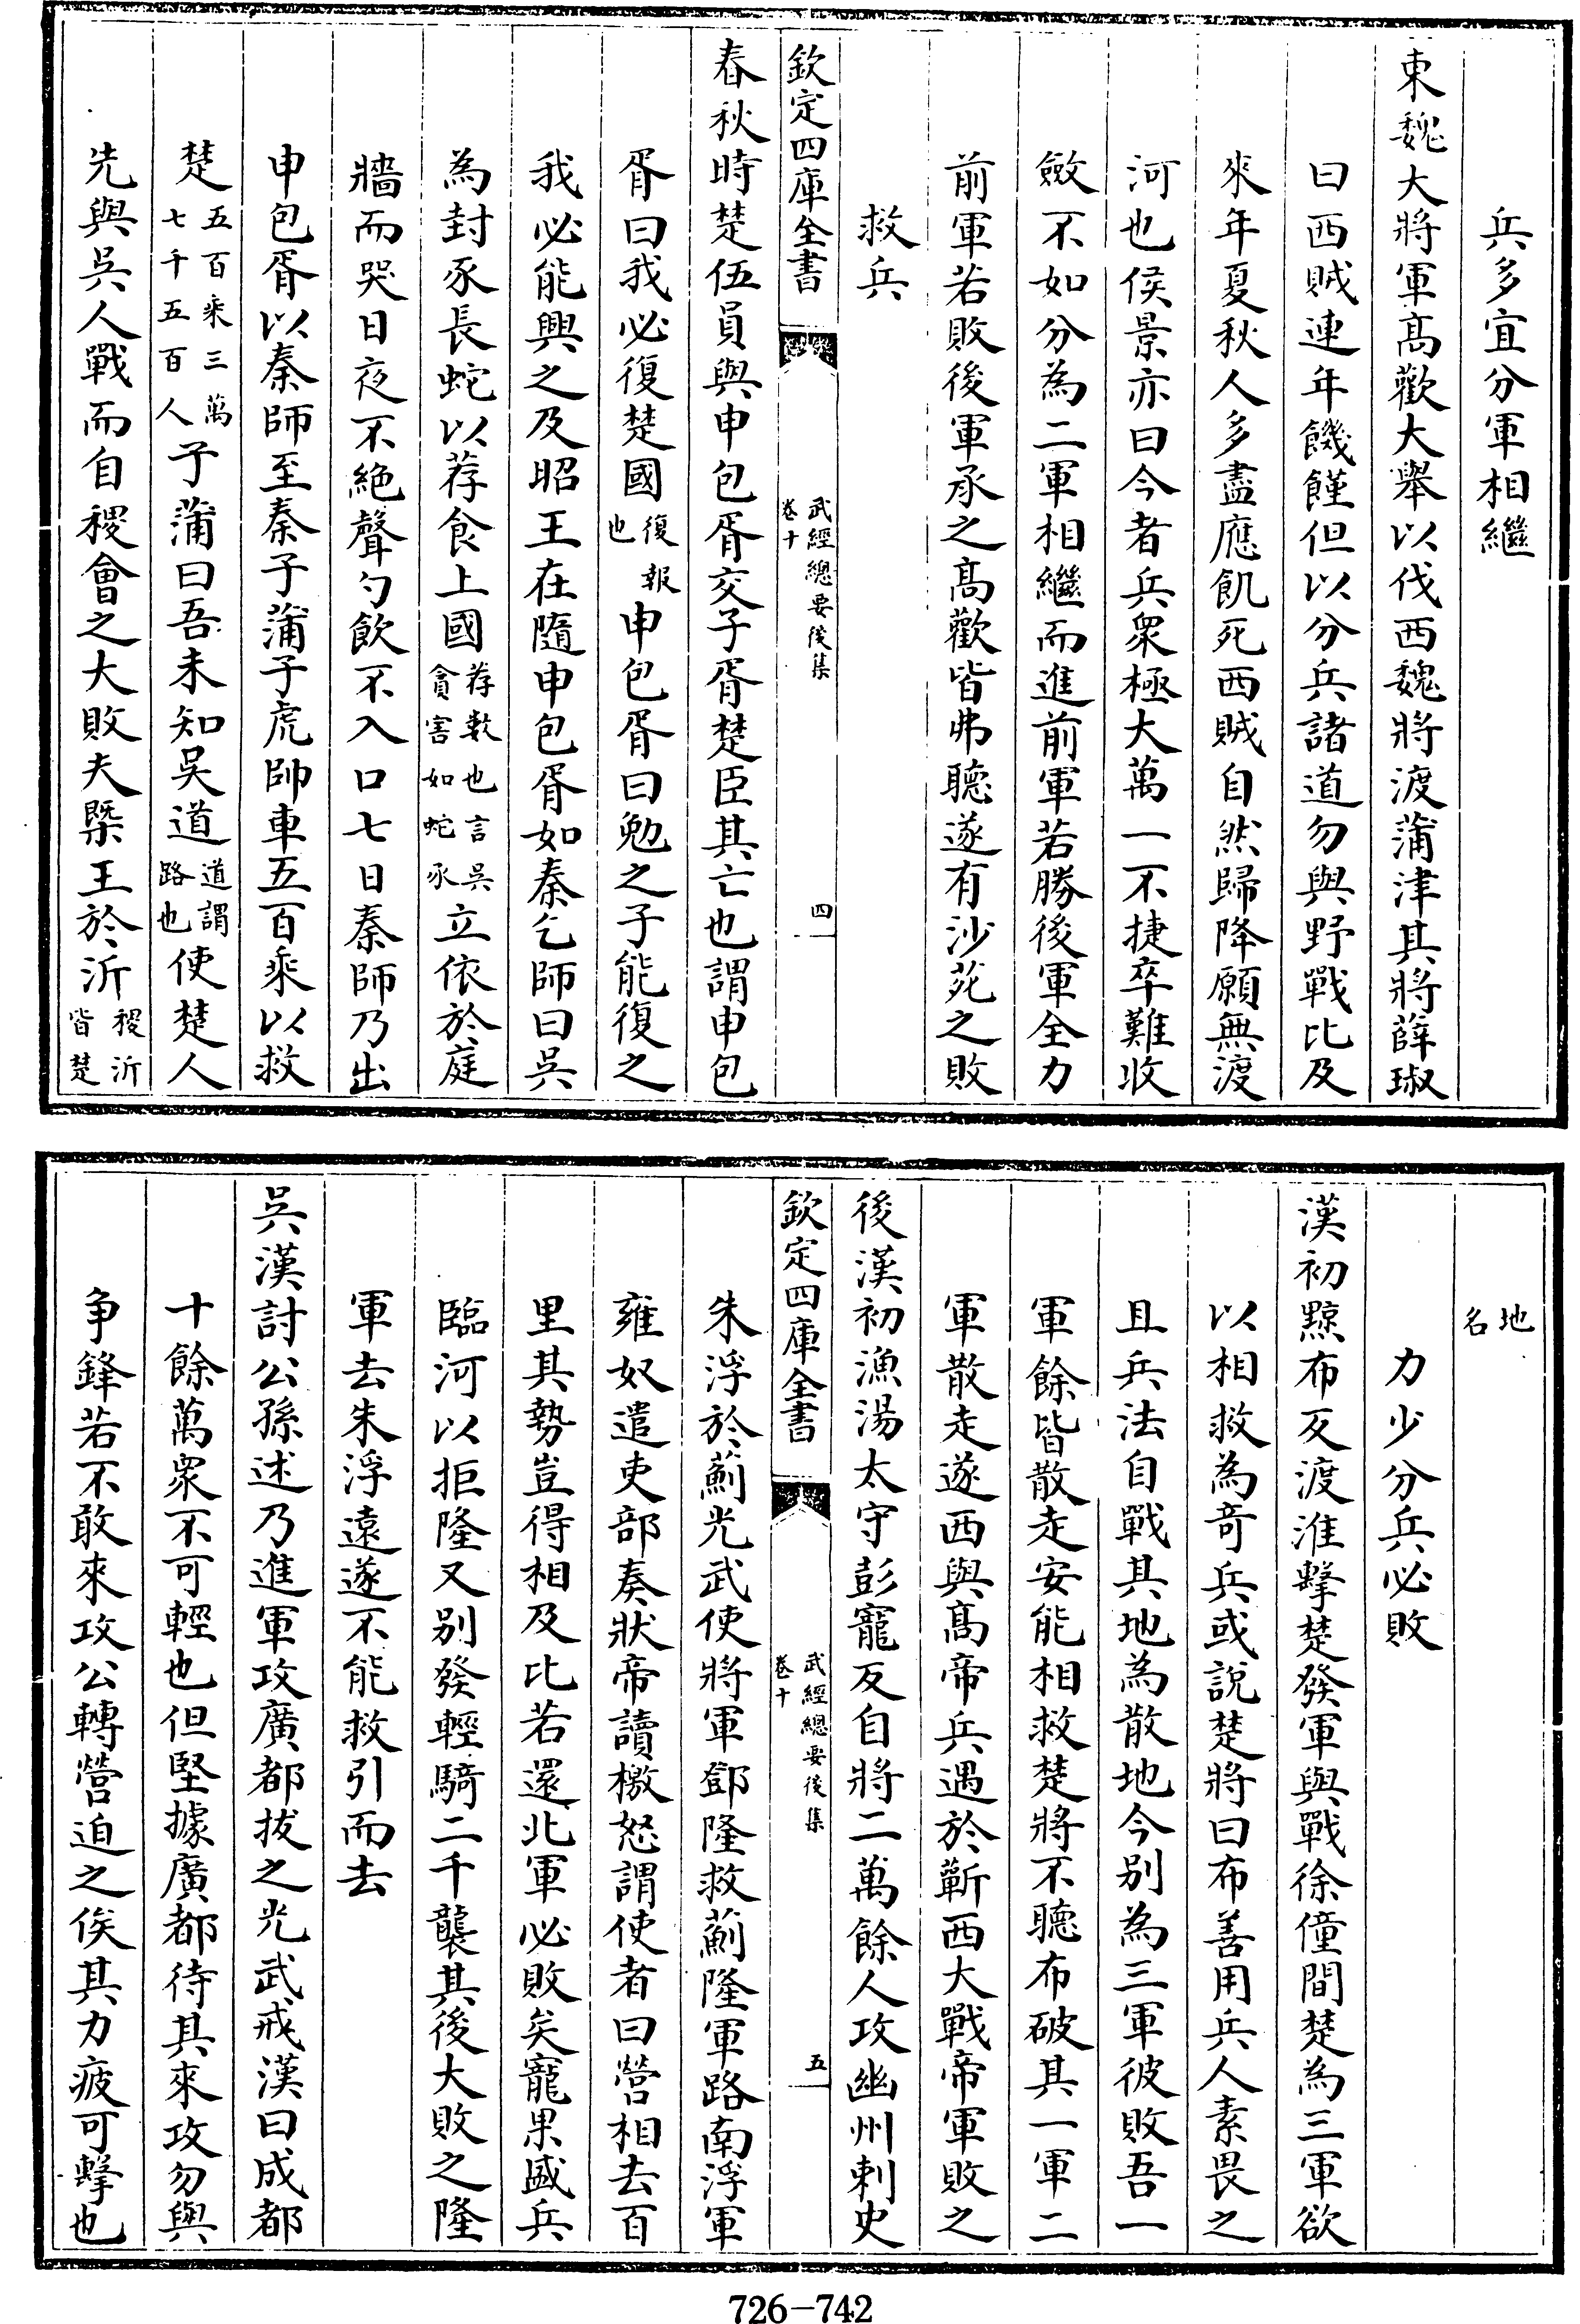 兵多宜分軍相繼
東魏大將軍髙歡大舉以伐西魏將渡蒲津其將薛琡
曰西賊連年饑饉但以分兵諸道勿與野戰比及
來年夏秋人多盡應飢死西賊自然歸降願無渡
河也侯景亦曰今者兵衆極大萬一不捷卒難收
斂不如分為二軍相繼而進前軍若勝後軍全力
前軍若敗後軍承之髙歡皆弗聽遂有沙苑之敗
救兵
欽定四庫全書
武經總要後集
卷十
四
春秋時楚伍員與申包胥交子胥楚臣其亡也謂申包
胥曰我必復楚國復報也申包胥曰勉之子能復之
我必能興之及昭王在隨申包胥如秦乞師曰吳
為封豕長蛇以荐食上國荐數也言吳貪害如蛇豕立依於庭
牆而哭日夜不絕聲勺飲不入口七日秦師乃出
申包胥以秦師至秦子蒲子虎帥車五百乘以救
楚五百乘三萬七千五百人子蒲曰吾未知吳道道謂路也使楚人
先與吳人戰而自稷會之大敗夫槩王於沂稷沂皆楚
地名
力少分兵必敗
漢初黥布反渡淮擊楚發軍與戰徐僮間楚為三軍欲
以相救為竒兵或說楚將曰布善用兵人素畏之
且兵法自戰其地為散地今别為三軍彼敗吾一
軍餘皆散走安能相救楚將不聽布破其一軍二
軍散走遂西與髙帝兵遇於蘄西大戰帝軍敗之
後漢初漁湯太守彭寵反自將二萬餘人攻幽州刺史
欽定四庫全書
武經總要後集
卷十
五
朱浮於薊光武使將軍鄧隆救薊隆軍路南浮軍
雍奴遣吏部奏狀帝讀檄怒謂使者曰營相去百
里其勢豈得相及比若還北軍必敗矣寵果盛兵
臨河以拒隆又别發輕騎二千襲其後大敗之隆
軍去朱浮遠遂不能救引而去
吳漢討公孫述乃進軍攻廣都拔之光武戒漢曰成都
十餘萬衆不可輕也但堅據廣都待其來攻勿與
争鋒若不敢來攻公轉營迫之俟其力疲可擊也
726-742